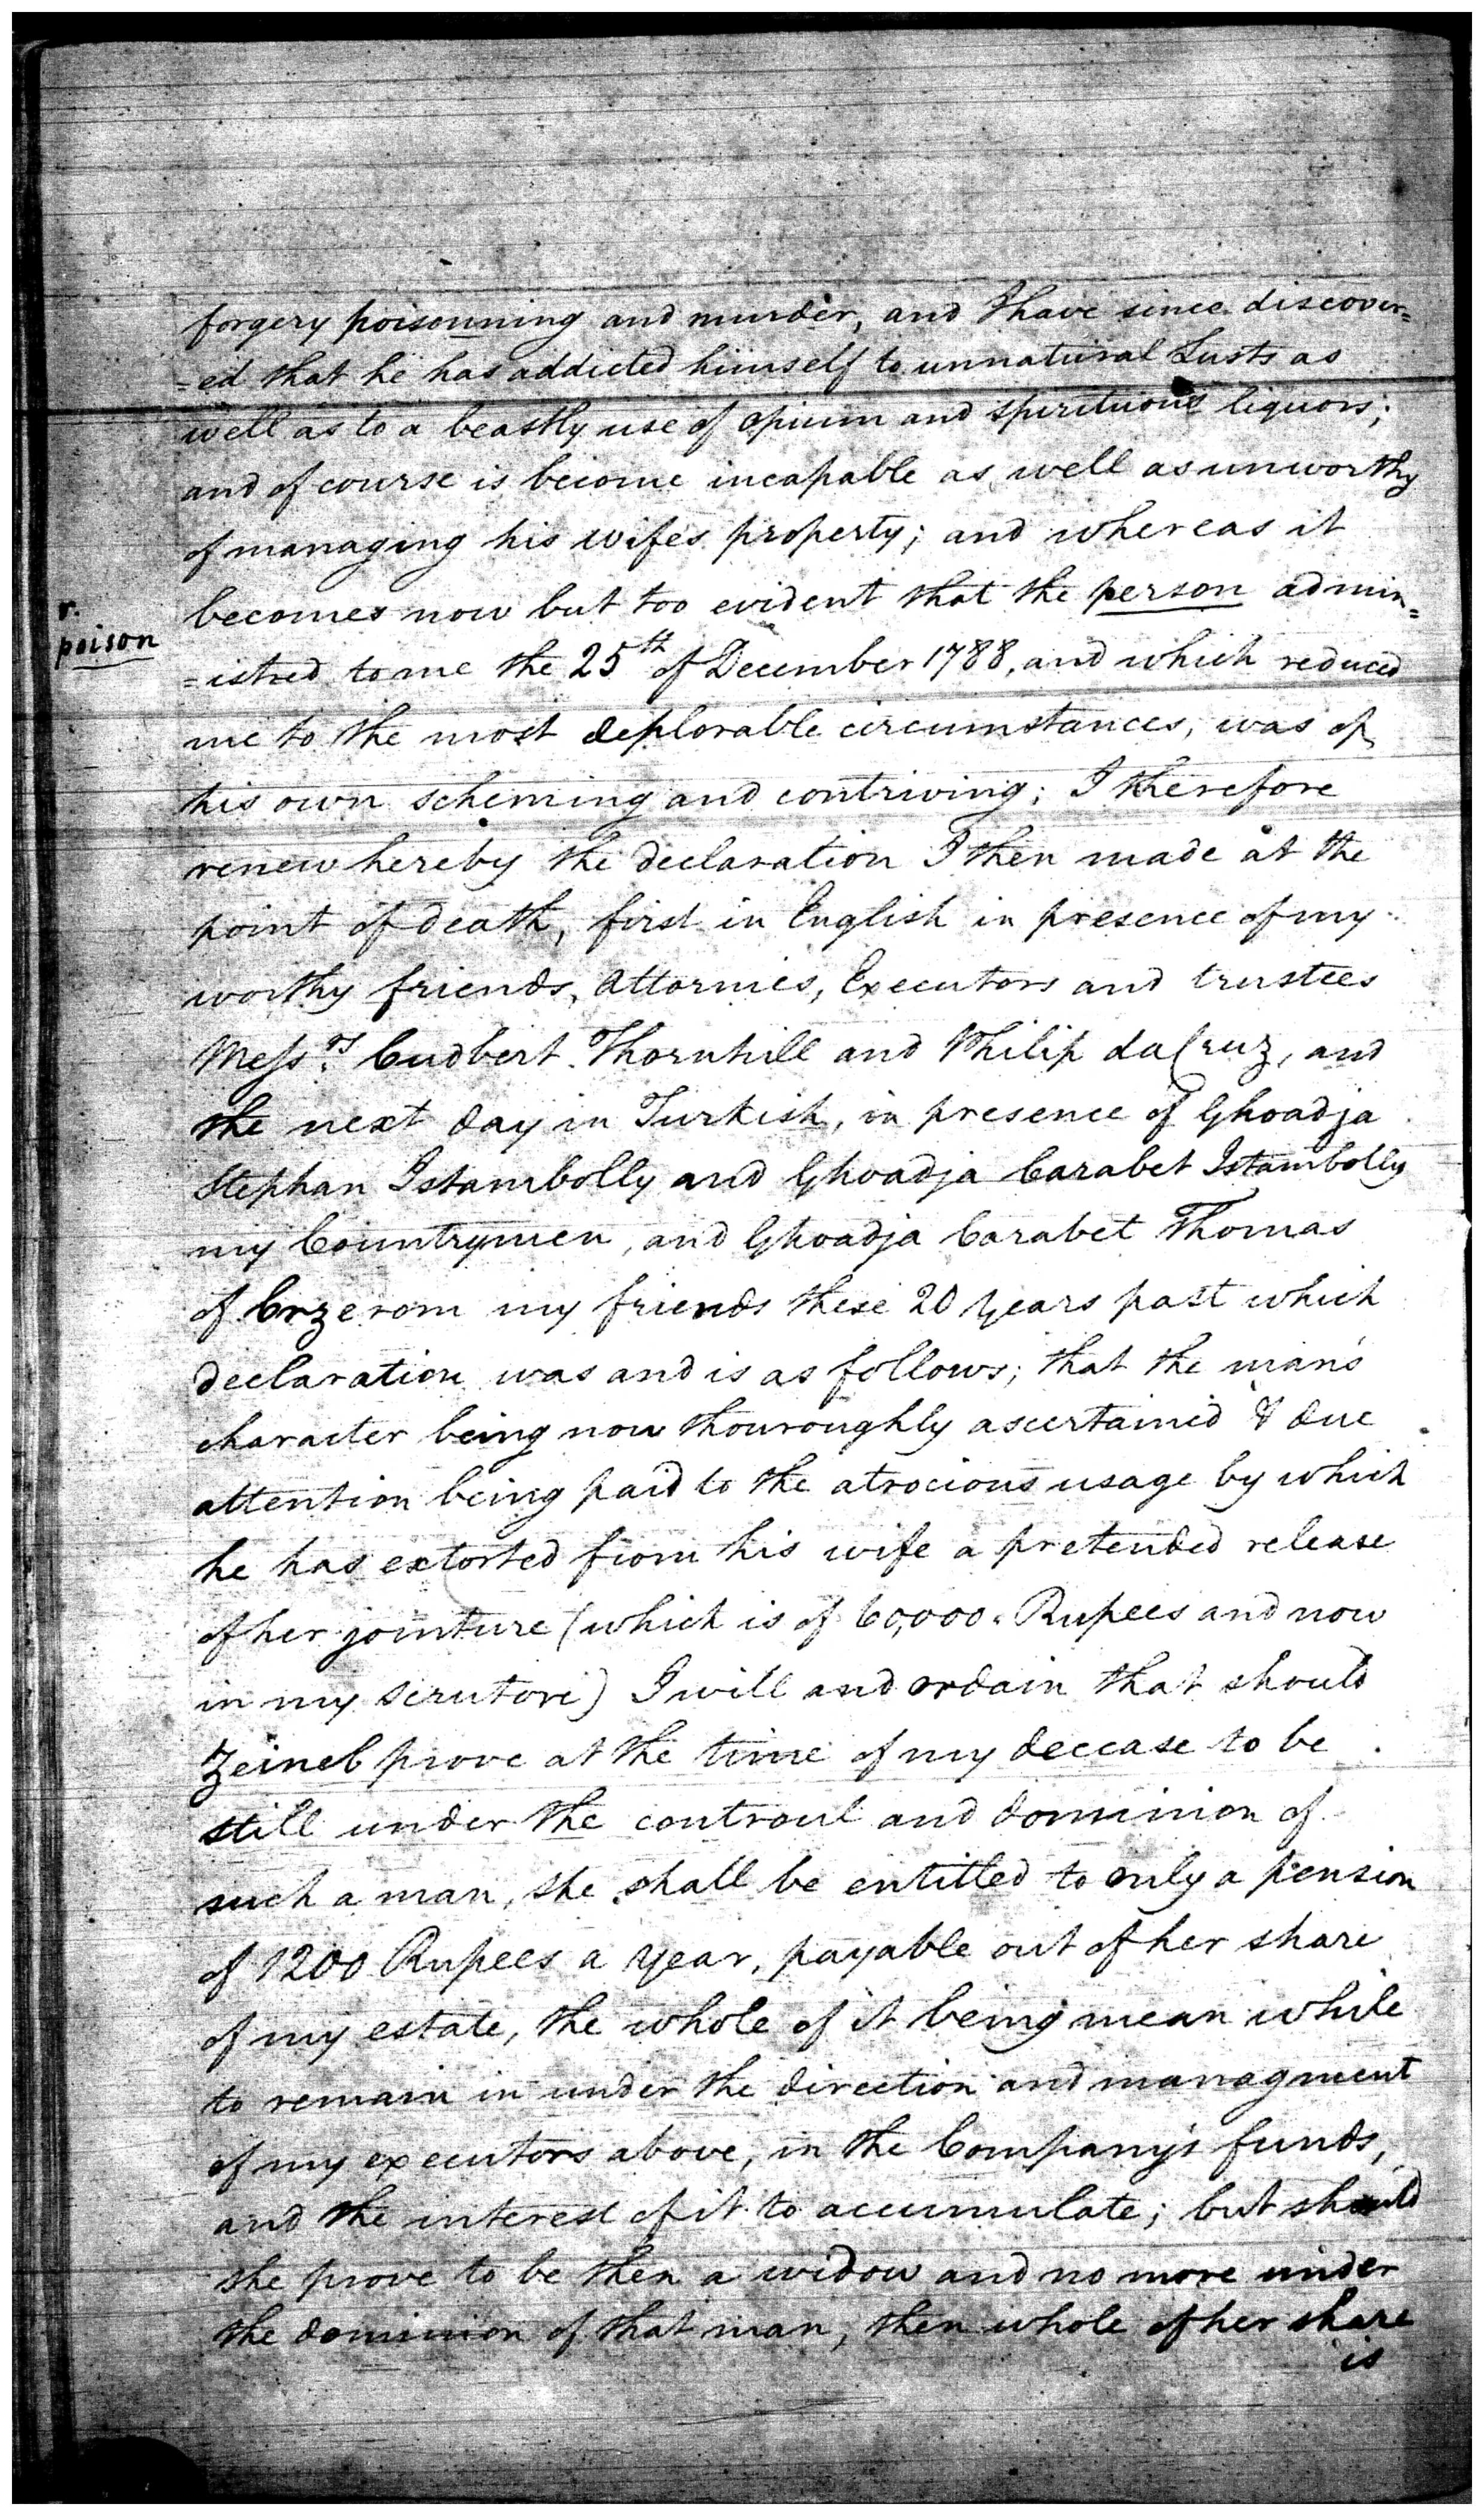 forgery poisonning and murder, and I have since discover=
=ed that he has addicted himself to unnatural Lusts as
well as to a beastly use of opium and spirituous liquors;
and of course is become incapable as well as unworthy
of managing his wifes property; and whereas it
becomes now but too evident that the person admin=
r.
poison
=istred to me the 25th of December 1788, and which reduced
me to the most deplorable circumstances, was of
his own scheming and contriving; I therefore
renew hereby the declaration I then made at the
point of death, first in English in presence of my
worthy friends, Attornies, Executors and trustees
Messrs. Cudbert Thornhill and Philip daCruz, and
the next day in Turkish, in presence of Ghoadja
Stephan Istambolly and Ghoadja Carabet Istambolly
my Countrymen, and Ghoadja Carabet Thomas
of Erzerom my friends these 20 years past which
declaration was and is as follows; that the man's
character being now thouroughly ascertained & due
attention being paid to the atrocious usage by which
he has extorted from his wife a pretended release
of her jointure (which is of 60,000 Rupees and now
in my scrutore) I will and ordain that should
Zeineb prove at the time of my decease to be
still under the controul and dominion of
such a man, she shall be entitled to only a pension
of 1200 Rupees a year, payable out of her share
of my estate, the whole of it being mean while
to remain in under the direction and managment
of my executors above, in the Company's funds,
and the interest of it to accumulate; but should
she prove to be then a widow and no more under
the dominion of that man, then whole of her share
is